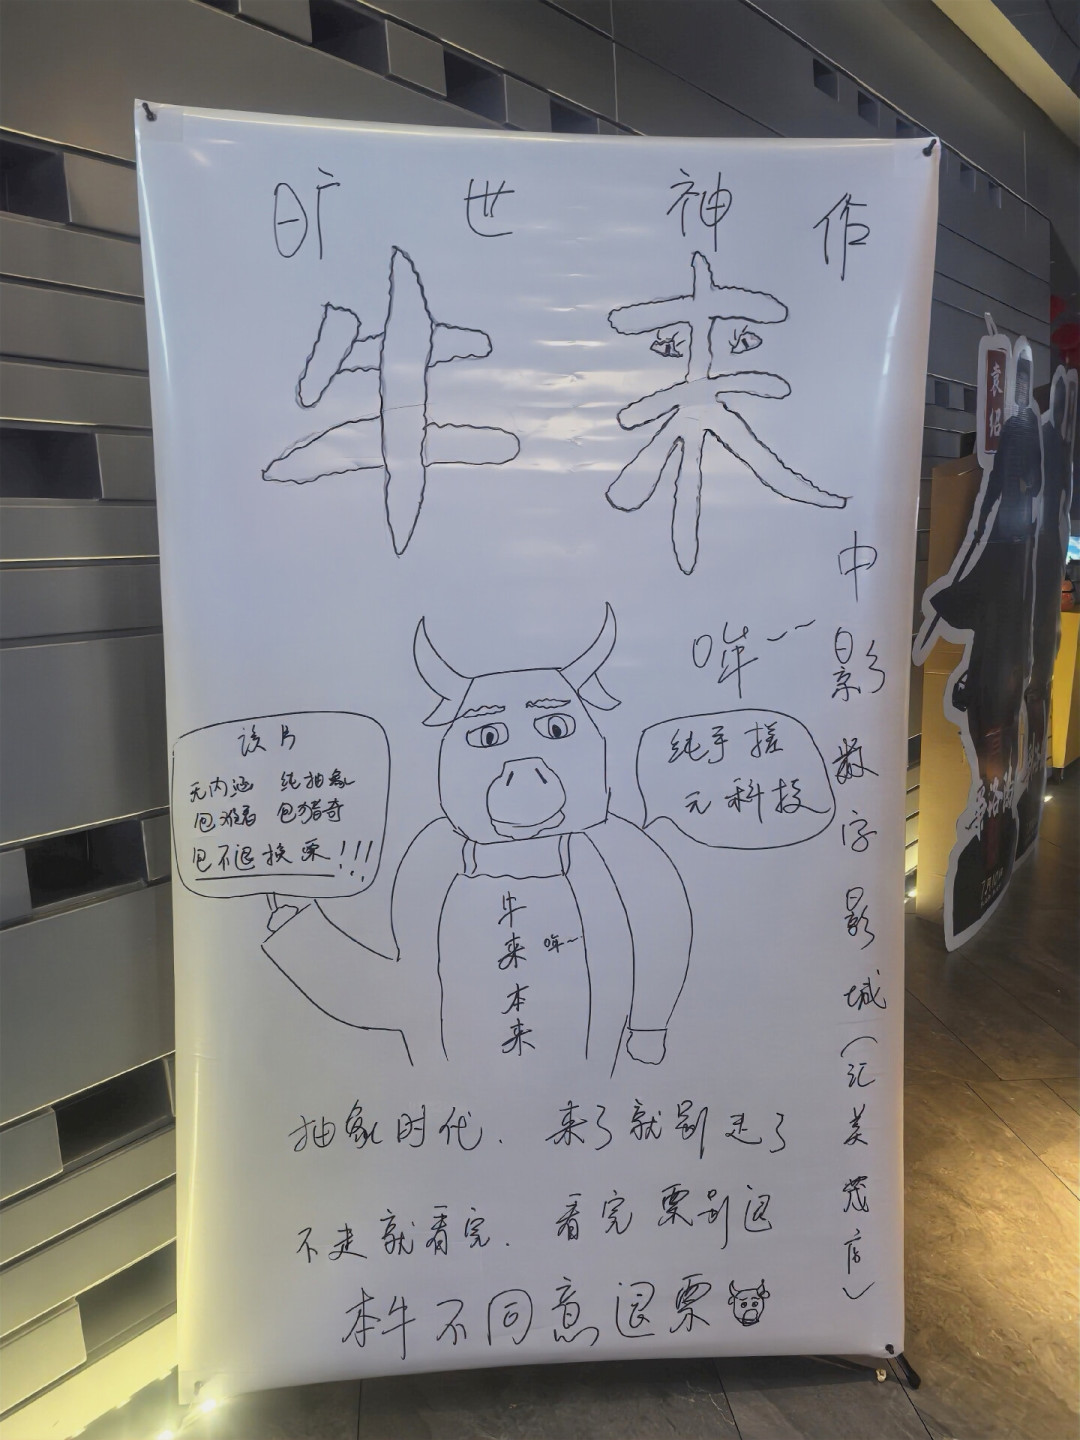 旷世神作
牛来
哞~~
中影数字影城(汇美茂店)
该片
无内涵 纯抽象
包难看 包猎奇
包不退换票!!!
纯手搓
元科技
牛来本来
哞~
抽象时代、来了就别走了
不走就看完、看完票别退
本牛不同意退票
袁绍